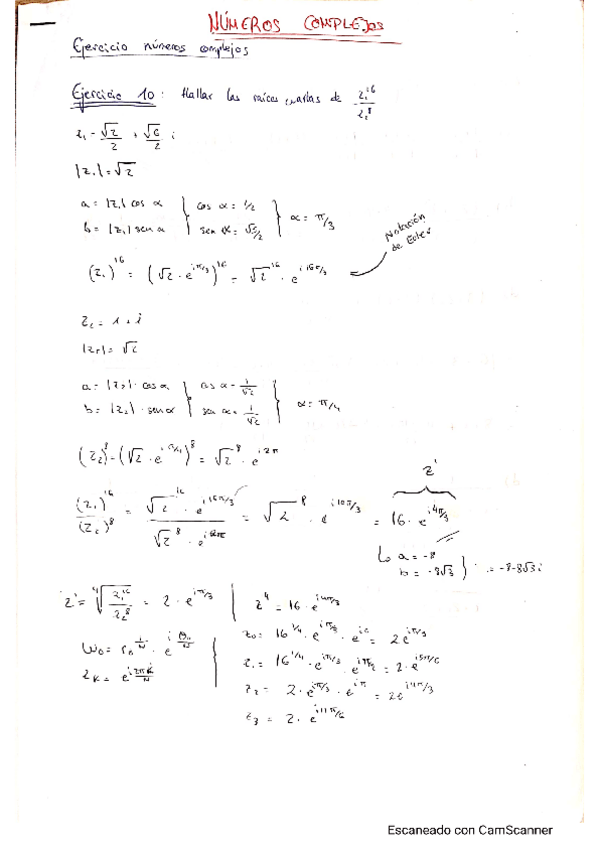 NÚMEROS COMPLEJOS
Ejercicio números complejos
Ejercicio 10: Hallar las raíces cuartas de z₁¹⁶/z₂⁸
z₁ = √2/2 + √6/2 i
|z₁| = √2
a = |z₁| cos α } cos α = 1/2 } α = π/3
b = |z₁| sen α } sen α = √3/2
Notación de Euler
(z₁)¹⁶ = (√2 · e^(iπ/3))¹⁶ = √2¹⁶ · e^(i16π/3)
z₂ = 1 + i
|z₂| = √2
a = |z₂| · cos α } cos α = 1/√2 } α = π/4
b = |z₂| · sen α } sen α = 1/√2
(z₂)⁸ = (√2 · e^(iπ/4))⁸ = √2⁸ · e^(i2π)
z'
(z₁)¹⁶/(z₂)⁸ = √2¹⁶ · e^(i16π/3) / √2⁸ · e^(i2π) = √2⁸ · e^(i10π/3) = 16 · e^(i4π/3)
a = -8
b = -8√3 } = -8-8√3 i
z' = ⁴√(z₁¹⁶/z₂⁸) = 2 · e^(iπ/3) | z⁴ = 16 · e^(i4π/3)
w₀ = r₀^(1/N) · e^(iθ₀/N)
z_K = e^(i2πK/N)
z₀ = 16^(1/4) · e^(iπ/3) · e^(i0) = 2e^(iπ/3)
z₁ = 16^(1/4) · e^(iπ/3) · e^(iπ/2) = 2 · e^(i5π/6)
z₂ = 2 · e^(iπ/3) · e^(iπ) = 2e^(i4π/3)
z₃ = 2 · e^(i11π/6)
Escaneado con CamScanner